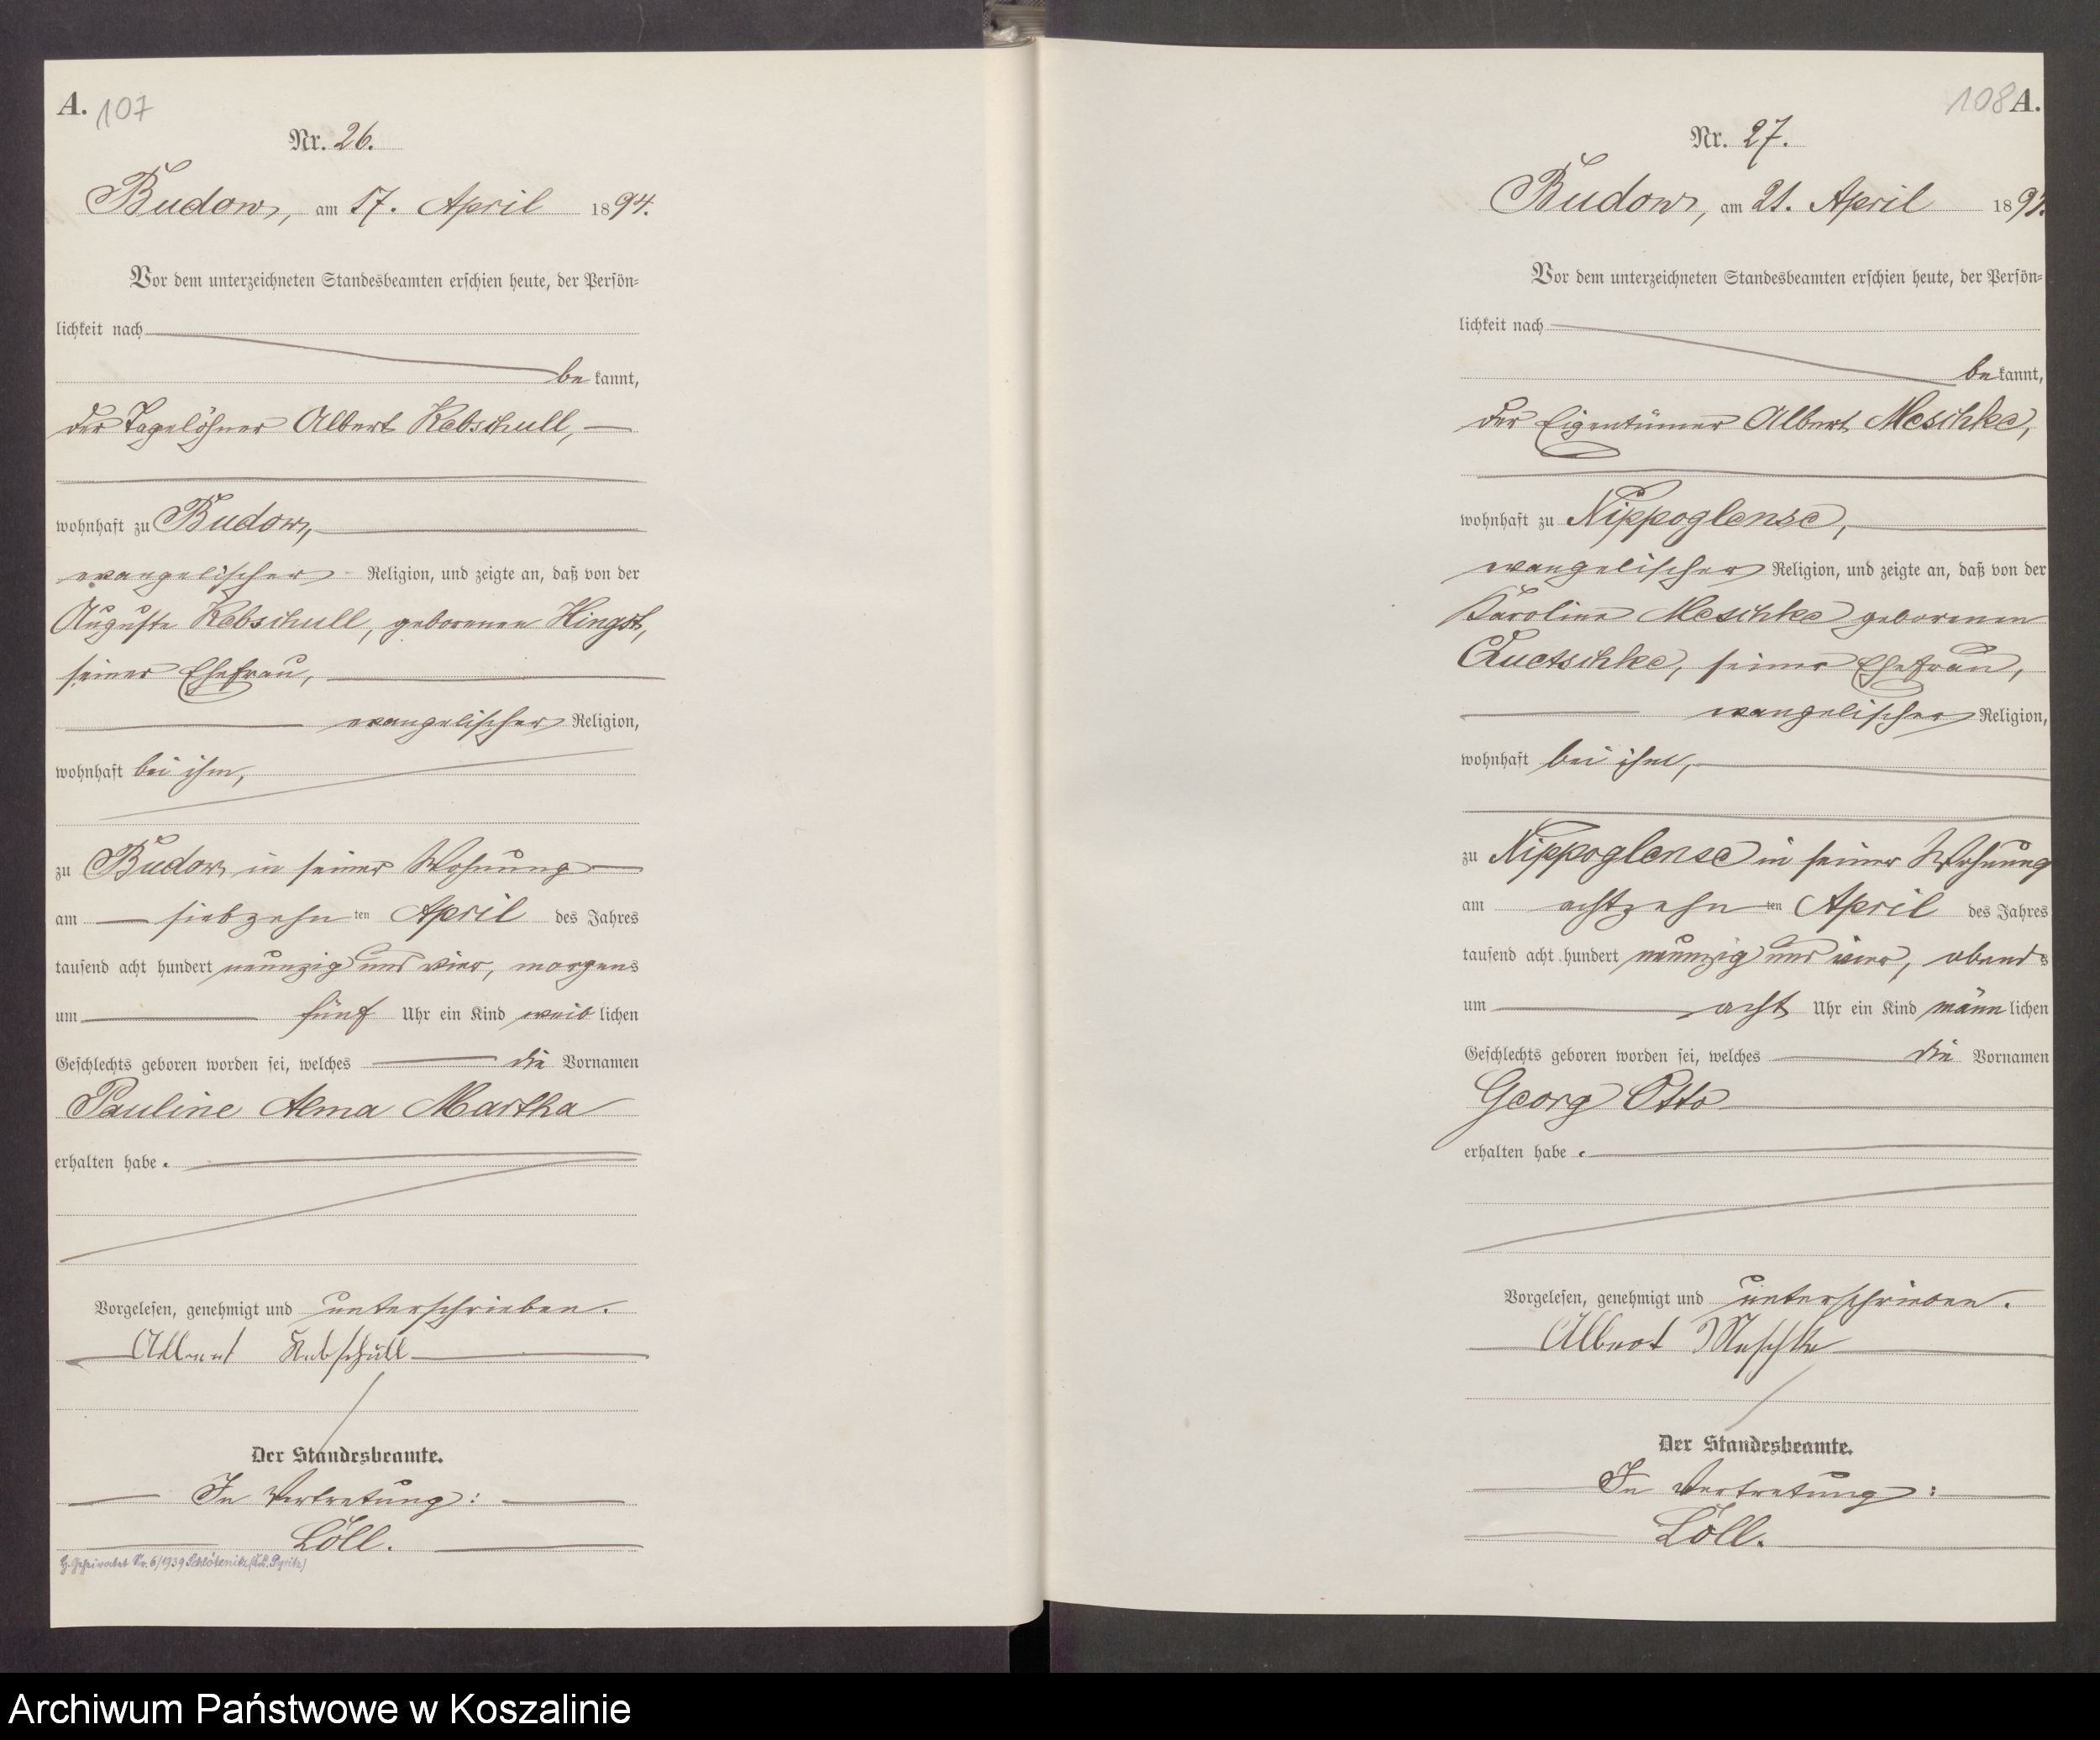 A. 107
Nr. 26.
Budow, am 17. April 1894.
Vor dem unterzeichneten Standesbeamten erschien heute, der Persön-
lichkeit nach
be kannt,
der Tagelöhner Albert Kebschull,
wohnhaft zu Budow,
evangelischer Religion, und zeigte an, daß von der
Auguste Kebschull, geborenen Hingst,
seiner Ehefrau,
evangelischer Religion,
wohnhaft bei ihm,
zu Budow in seiner Wohnung
am siebzehn ten April des Jahres
tausend acht hundert neunzig und vier, morgens
um fünf Uhr ein Kind weib lichen
Geschlechts geboren worden sei, welches die Vornamen
Pauline Alma Martha
erhalten habe.
Vorgelesen, genehmigt und unterschrieben.
Albert Kebschull
Der Standesbeamte.
In Vertretung:
Löll.
Nr. 6/1939
108 A.
Nr. 27.
Budow, am 21. April 1894.
Vor dem unterzeichneten Standesbeamten erschien heute, der Persön-
lichkeit nach
be kannt,
der Eigentümer Albert Meschke,
wohnhaft zu Nippoglense,
evangelischer Religion, und zeigte an, daß von der
Karoline Meschke geborenen
Quetschke, seiner Ehefrau,
evangelischer Religion,
wohnhaft bei ihm,
zu Nippoglense in seiner Wohnung
am achtzehn ten April des Jahres
tausend acht hundert neunzig und vier, abends
um acht Uhr ein Kind männ lichen
Geschlechts geboren worden sei, welches die Vornamen
Georg Otto
erhalten habe.
Vorgelesen, genehmigt und unterschrieben.
Albert Meschke
Der Standesbeamte.
In Vertretung:
Löll.
Archiwum Państwowe w Koszalinie